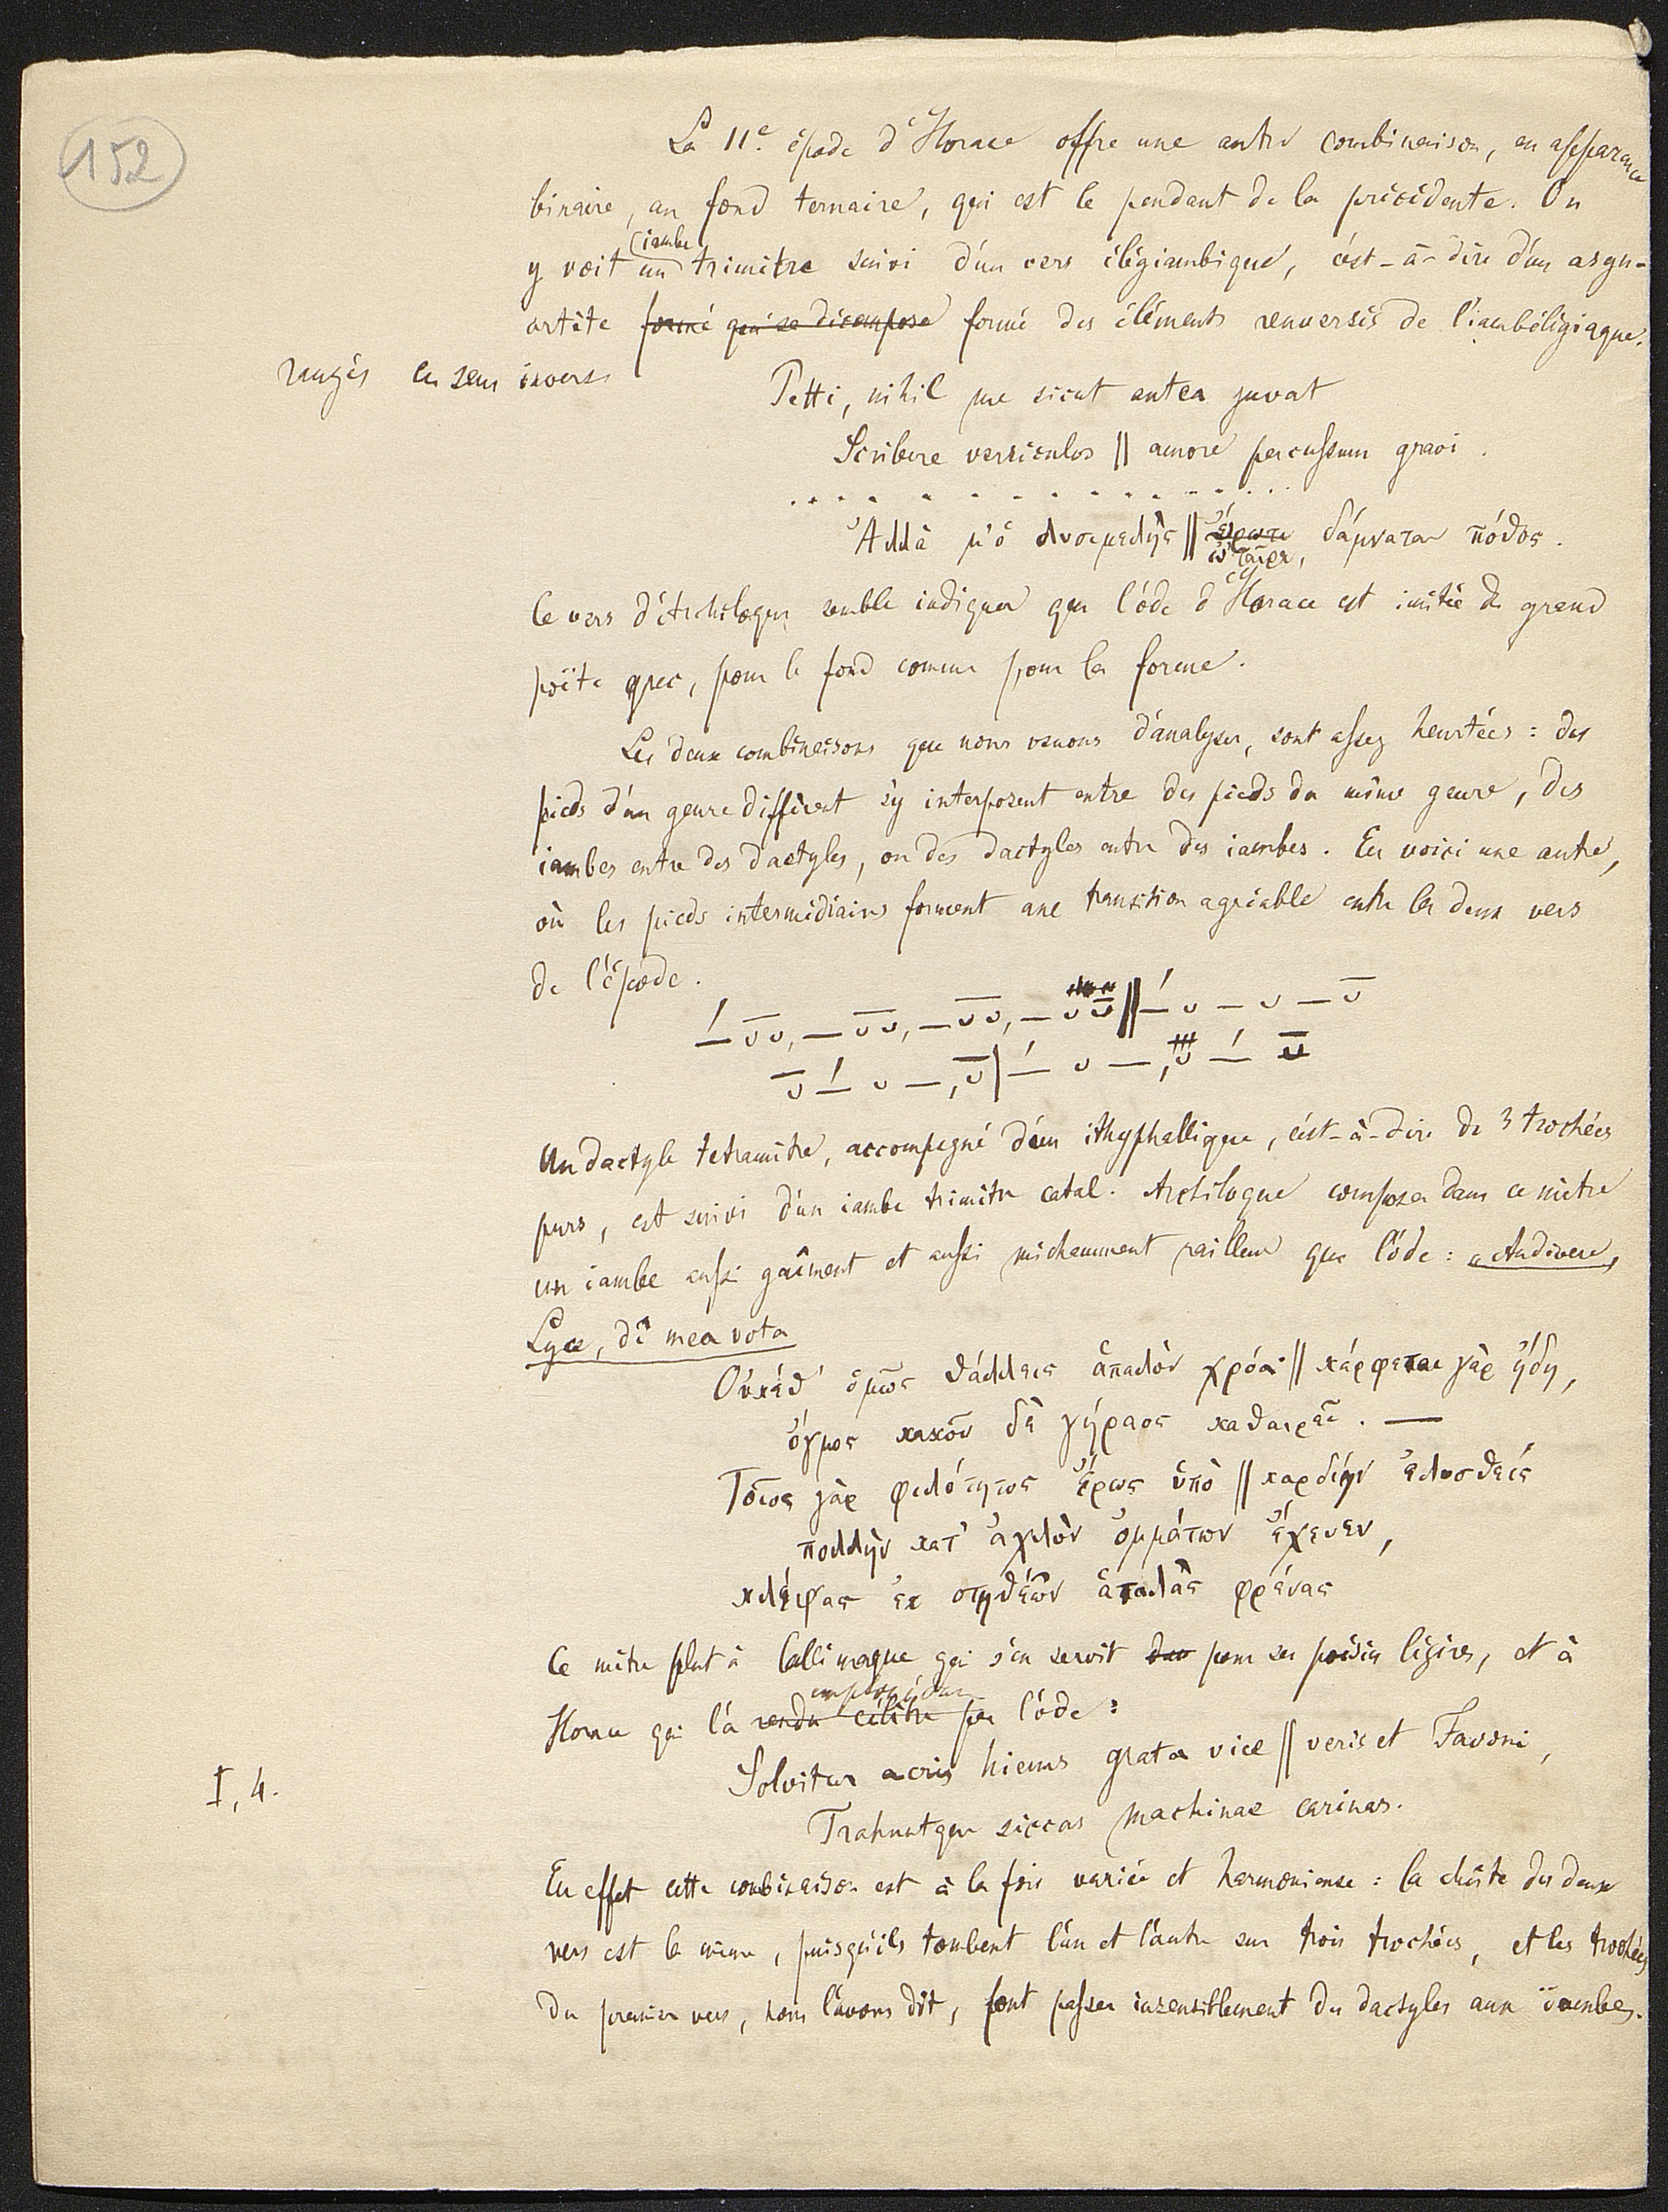 152
La 11e. épode d'Horace offre une autre combinaison, en apparence
binaire, au fond ternaire, qui est le pendant de la précédente. On
iambe
y voit un trimètre suivi d'un vers élégiambique, c'est-à-dire d'un asyn-
artète formé qui se décompose formé des éléments renversés de l'iambélégiaque.
rangés en sens inverse
Petti, nihil me sicut antea juvat
Scribere versiculos || amore percussum gravi.
. . . . . . . . . . . . . . .
Ἀλλά μ' ὁ λυσιμελὴς || ἔρωτι δάμναται πόθος.
ὦ 'ταῖρε,
Ce vers d'Archiloque semble indiquer que l'ode d'Horace est imitée du grand
poëte grec, pour le fond comme pour la forme.
Les deux combinaisons que nous venons d'analyser, sont assez heurtées : des
pieds d'un genre différent s'y interposent entre des pieds du même genre, des
iambes entre des dactyles, ou des dactyles entre des iambes. En voici une autre,
où les pieds intermédiaires forment une transition agréable entre les deux vers
de l'épode.
Un dactyle tetramètre, accompagné d'un ithyphallique, c'est-à-dire de 3 trochées
purs, est suivi d'un iambe trimètre catal. Archiloque composa dans ce mètre
un iambe aussi gaîment et aussi méchamment railleur que l'ode : "Audivere,
Lyce, di mea vota
Οὐκέθ' ὁμῶς θάλλεις ἁπαλὸν χρόα· || κάρφεται γὰρ ἤδη,
ὄγμος κακῶν δὲ γήραος καθαιρεῖ. —
Τοῖος γὰρ φιλότητος ἔρως ὑπὸ || καρδίην ἐλυσθείς
πολλὴν κατ' ἀχλὺν ὀμμάτων ἔχευεν,
κλέψας ἐκ στηθέων ἁπαλὰς φρένας
Ce mètre plut à Callimaque qui s'en servit dan pour ses poésies légères, et à
employé dans
Horace qui l'a rendu célèbre par l'ode :
Solvitur acris hiems grata vice || veris et Favoni,
I, 4.
Trahuntque siccas machinae carinas.
En effet cette combinaison est à la fois variée et harmonieuse : la chûte des deux
vers est la même, puisqu'ils tombent l'un et l'autre sur trois trochées, et les trochées
du premier vers, nous l'avons dit, font passer insensiblement des dactyles aux iambes.